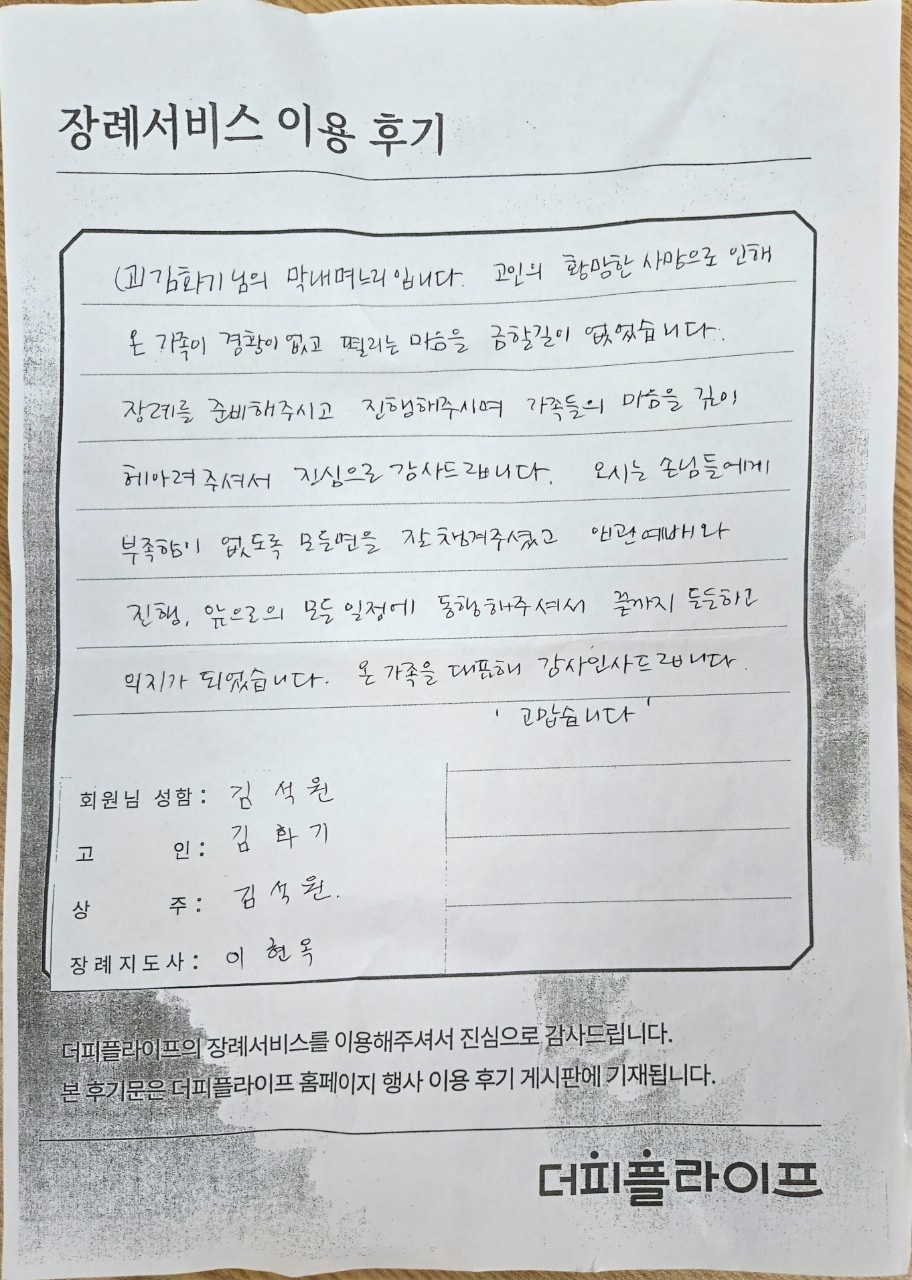 장례서비스 이용 후기
(고)김화기님의 막내며느리입니다. 고인의 황망한 사망으로 인해
온 가족이 경황이 없고 떨리는 마음을 금할길이 없었습니다.
장례를 준비해주시고 진행해주시며 가족들의 마음을 깊이
헤아려주셔서 진심으로 감사드립니다. 오시는 손님들에게
부족함이 없도록 모든면을 잘 챙겨주셨고 입관예배와
진행, 앞으로의 모든 일정에 동행해주셔서 끝까지 든든하고
의지가 되었습니다. 온 가족을 대표해 감사인사드립니다.
'고맙습니다'
회원님 성함: 김석원
고 인: 김화기
상 주: 김석원.
장례지도사: 이현옥
더피플라이프의 장례서비스를 이용해주셔서 진심으로 감사드립니다.
본 후기문은 더피플라이프 홈페이지 행사 이용 후기 게시판에 기재됩니다.
더피플라이프